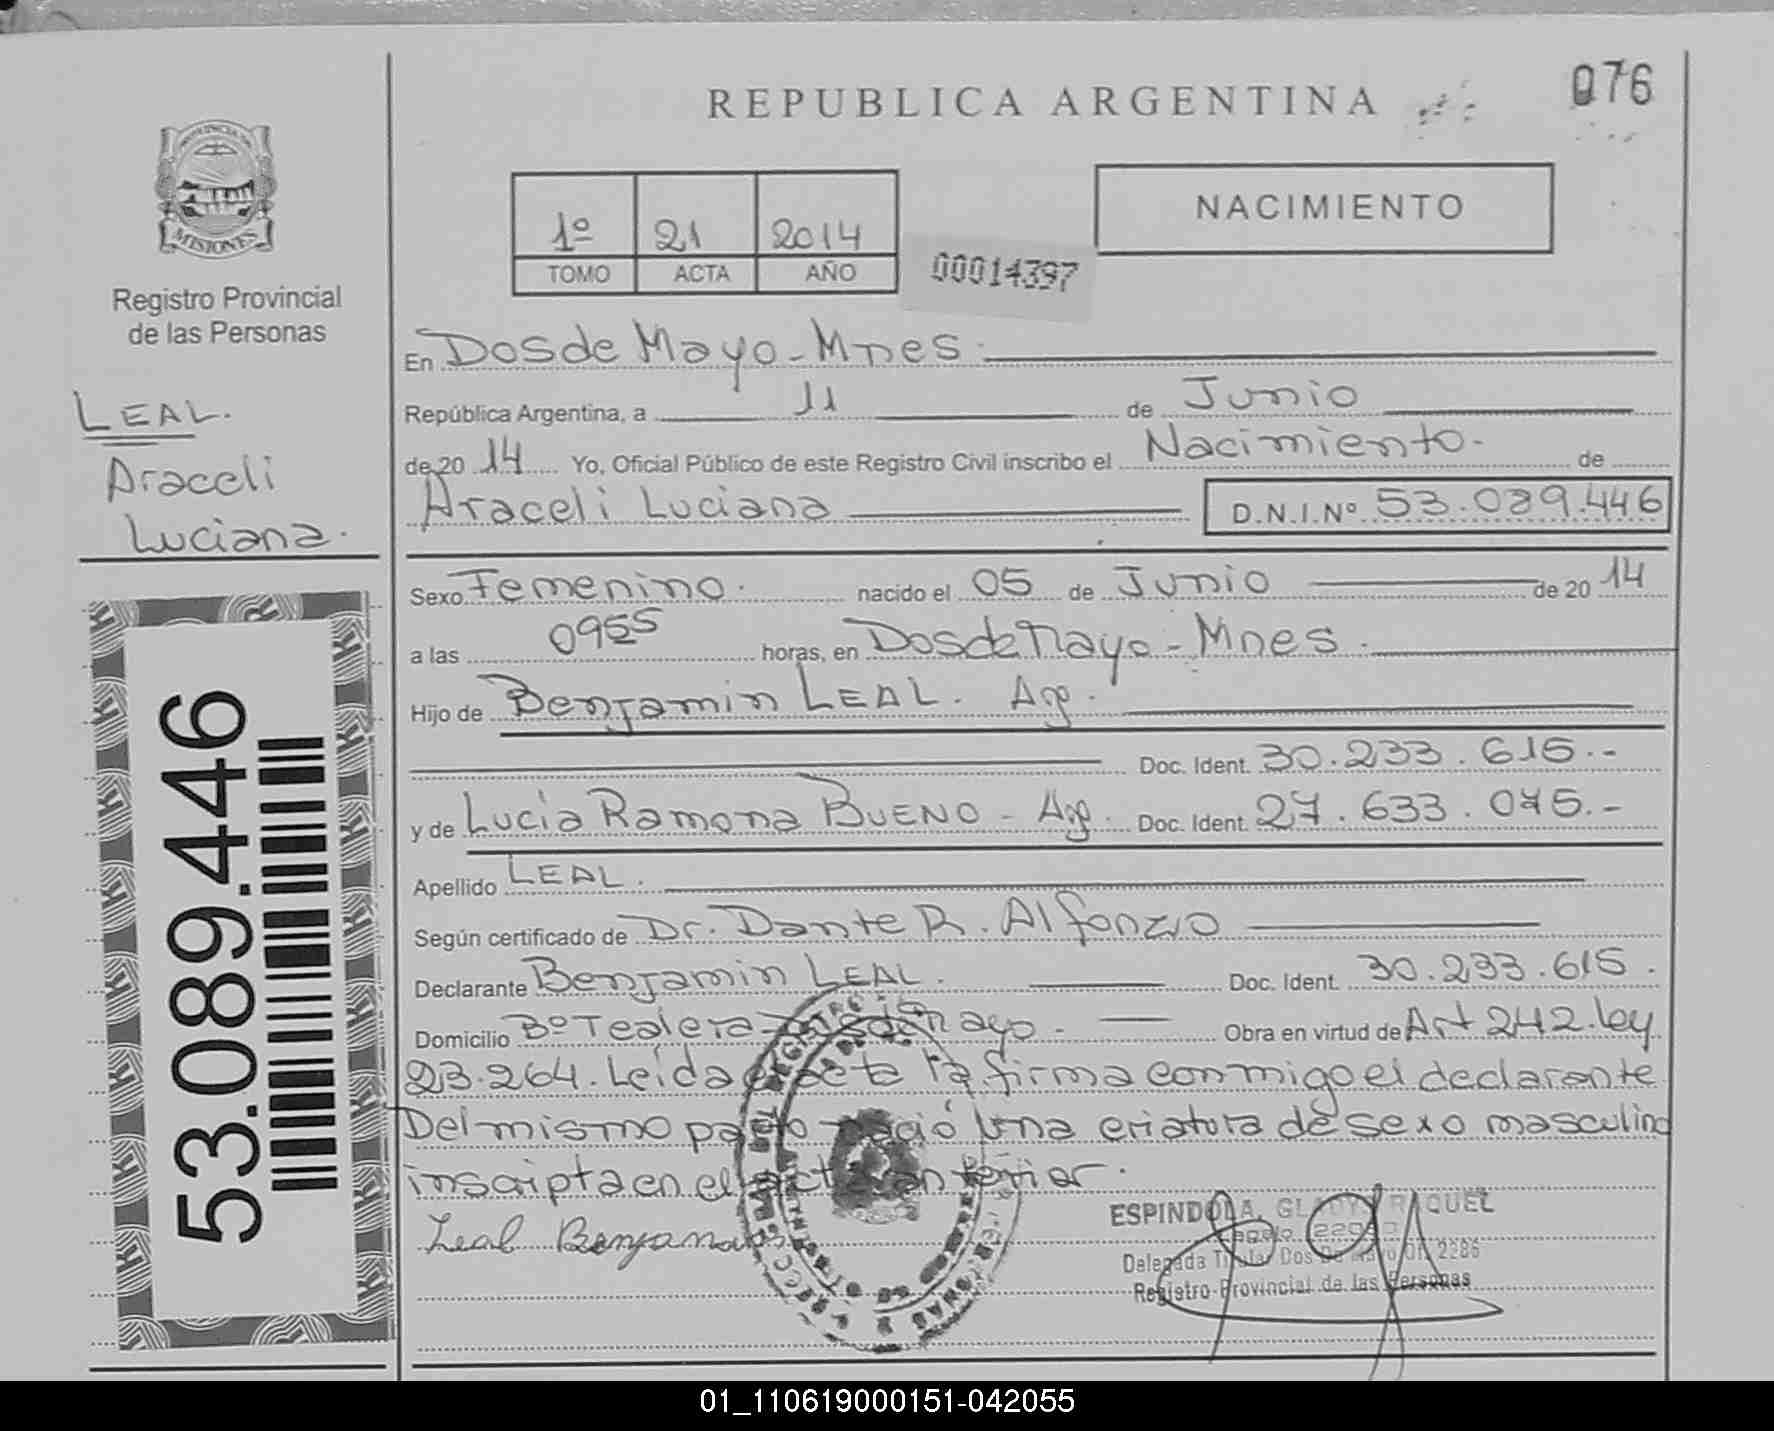 REPUBLICA ARGENTINA
076
PROVINCIA DE
MISIONES
Registro Provincial
de las Personas
1º 21 2014
TOMO ACTA AÑO
00014397
NACIMIENTO
En Dos de Mayo - Mnes.
República Argentina, a 11 de Junio
de 20 14 Yo, Oficial Público de este Registro Civil inscribo el Nacimiento. de
Araceli Luciana D.N.I.Nº 53.089.446
LEAL.
Araceli
Luciana.
53.089.446
Sexo Femenino. nacido el 05 de Junio de 20 14
a las 0955 horas, en Dos de Mayo - Mnes.
Hijo de Benjamin LEAL. Arg.
Doc. Ident. 30.233.615.-
y de Lucia Ramona BUENO - Arg. Doc. Ident. 27.633.075.-
Apellido LEAL.
Según certificado de Dr. Dante R. Alfonzo
Declarante Benjamin LEAL. Doc. Ident. 30.233.615.
Domicilio Bº Tealera - Dos de Mayo. Obra en virtud de Art 242. ley
23.264. Leída el acta la firma conmigo el declarante
Del mismo parto nació una criatura de sexo masculino
inscripta en el acta anterior.
Leal Benjamin
ESPINDOLA, GLADYS RAQUEL
Legajo
Delegada Titular Dos De Mayo Of. 2286
Registro Provincial de las Personas
01_110619000151-042055